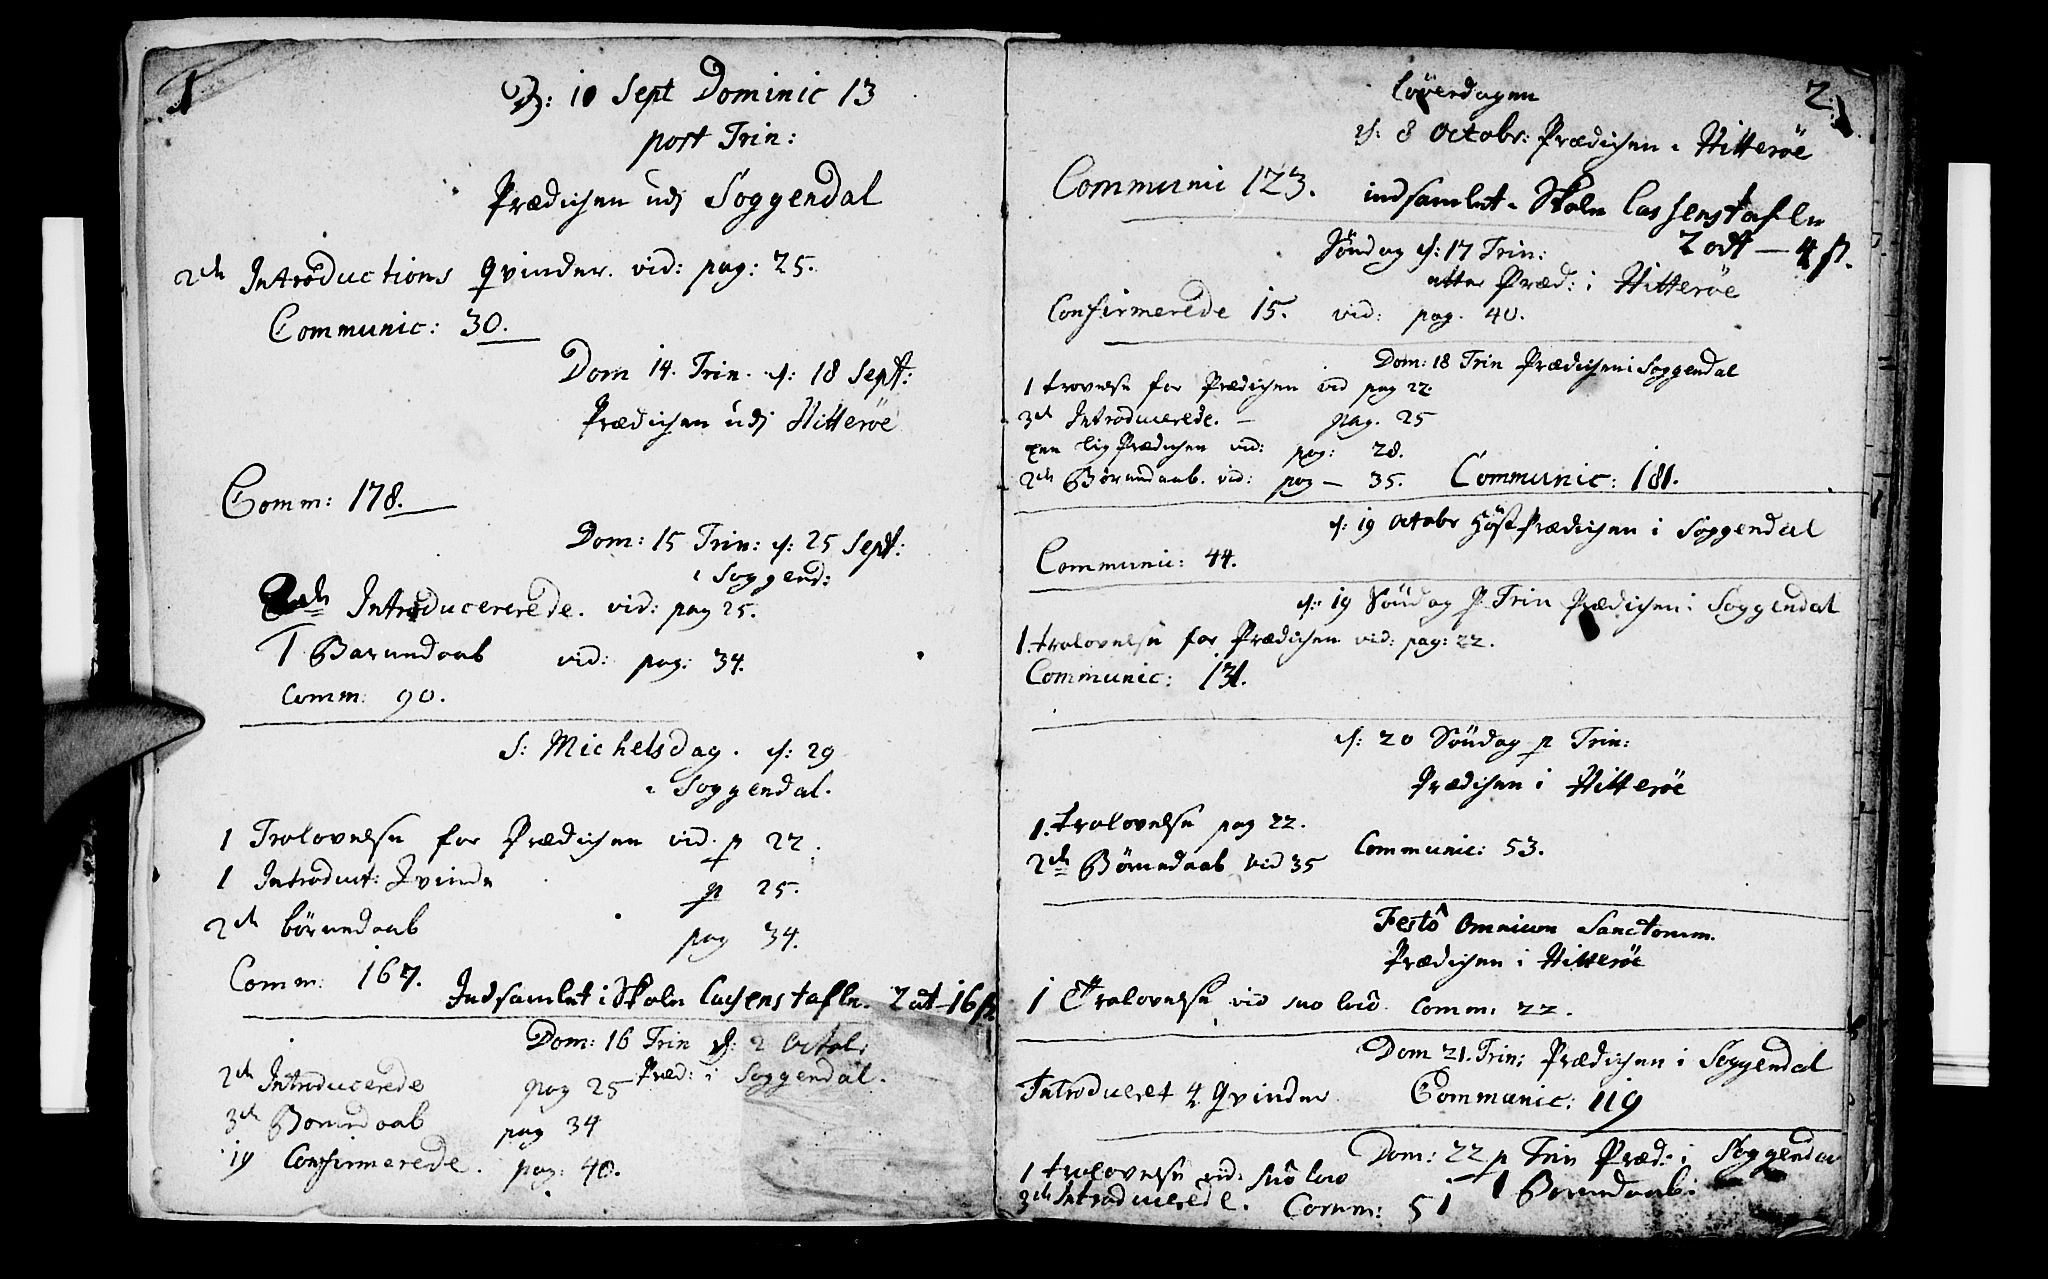 1
D: 10 Sept Dominic 13
post Trin:
Prædichen udj Soggendal
2de Introductions Qvinder. vid: pag: 25.
Communic: 30.
Dom 14. Trin. d: 18 Sept:
Prædichen udj Hitterøe
Comm: 178.
Dom: 15 Trin: d: 25 Sept:
i Soggend:
2de Introducererede. vid: pag 25.
1 Barnedaab vid: pag: 34.
Comm: 90.
S: Michelsdag. d: 29
i Soggendal.
1 Trolovelse for Prædichen vid. p 22.
1 Introduct: Qvinde p 25.
2de börnedaab pag 34.
Comm: 167.
Indsamlet i Skole Cassens tafle. 2 ort - 16 s
Dom: 16 Trin d: 2 Octob:
Præd: i Soggendal.
2de Introducerede pag 25
3de Bornedaab pag 34
19 Confirmerede. pag: 40.
2.
Löverdagen
d: 8 Octobr: Prædichen i Hitterøe
Communic 123.
indsamlet i Skole Cassens tafle
2 ort - 4 s.
Söndag d: 17 Trin:
atter Præd: i Hitterøe
Confirmerede 15. vid: pag. 40.
Dom: 18 Trin Prædichen i Soggendal
1 trovelse for Prædichen vid pag 22.
3de Introducerede. - pag. 25
een Lig Prædichen vid: pag: 28.
2de Börnedaab. vid: pag - 35. Communic: 181.
d: 19 Octobr Höst Prædichen i Soggendal
Communic: 44.
d: 19 Söndag p Trin Prædichen i Soggendal
1. trolovelse for Prædichen vid: pag: 22.
Communic: 131.
d: 20 Söndag p Trin:
Prædichen i Hitterøe
1. trolovelse pag 22.
2de Börnedaab vid 35 Communic: 53.
Festô Omnium Sanctorum.
Prædichen i Hitterøe
1 Trolovelse vid suo loco. Comm: 22.
Dom 21. Trin: Prædichen i Soggendal
Introduceret 4 Qvinder Communic: 119
Dom: 22 p Trin Præd: i Soggendal
1 trolovelse vid: suo loco
1 Barnedaab:
3de Introducerede. Comm: 51